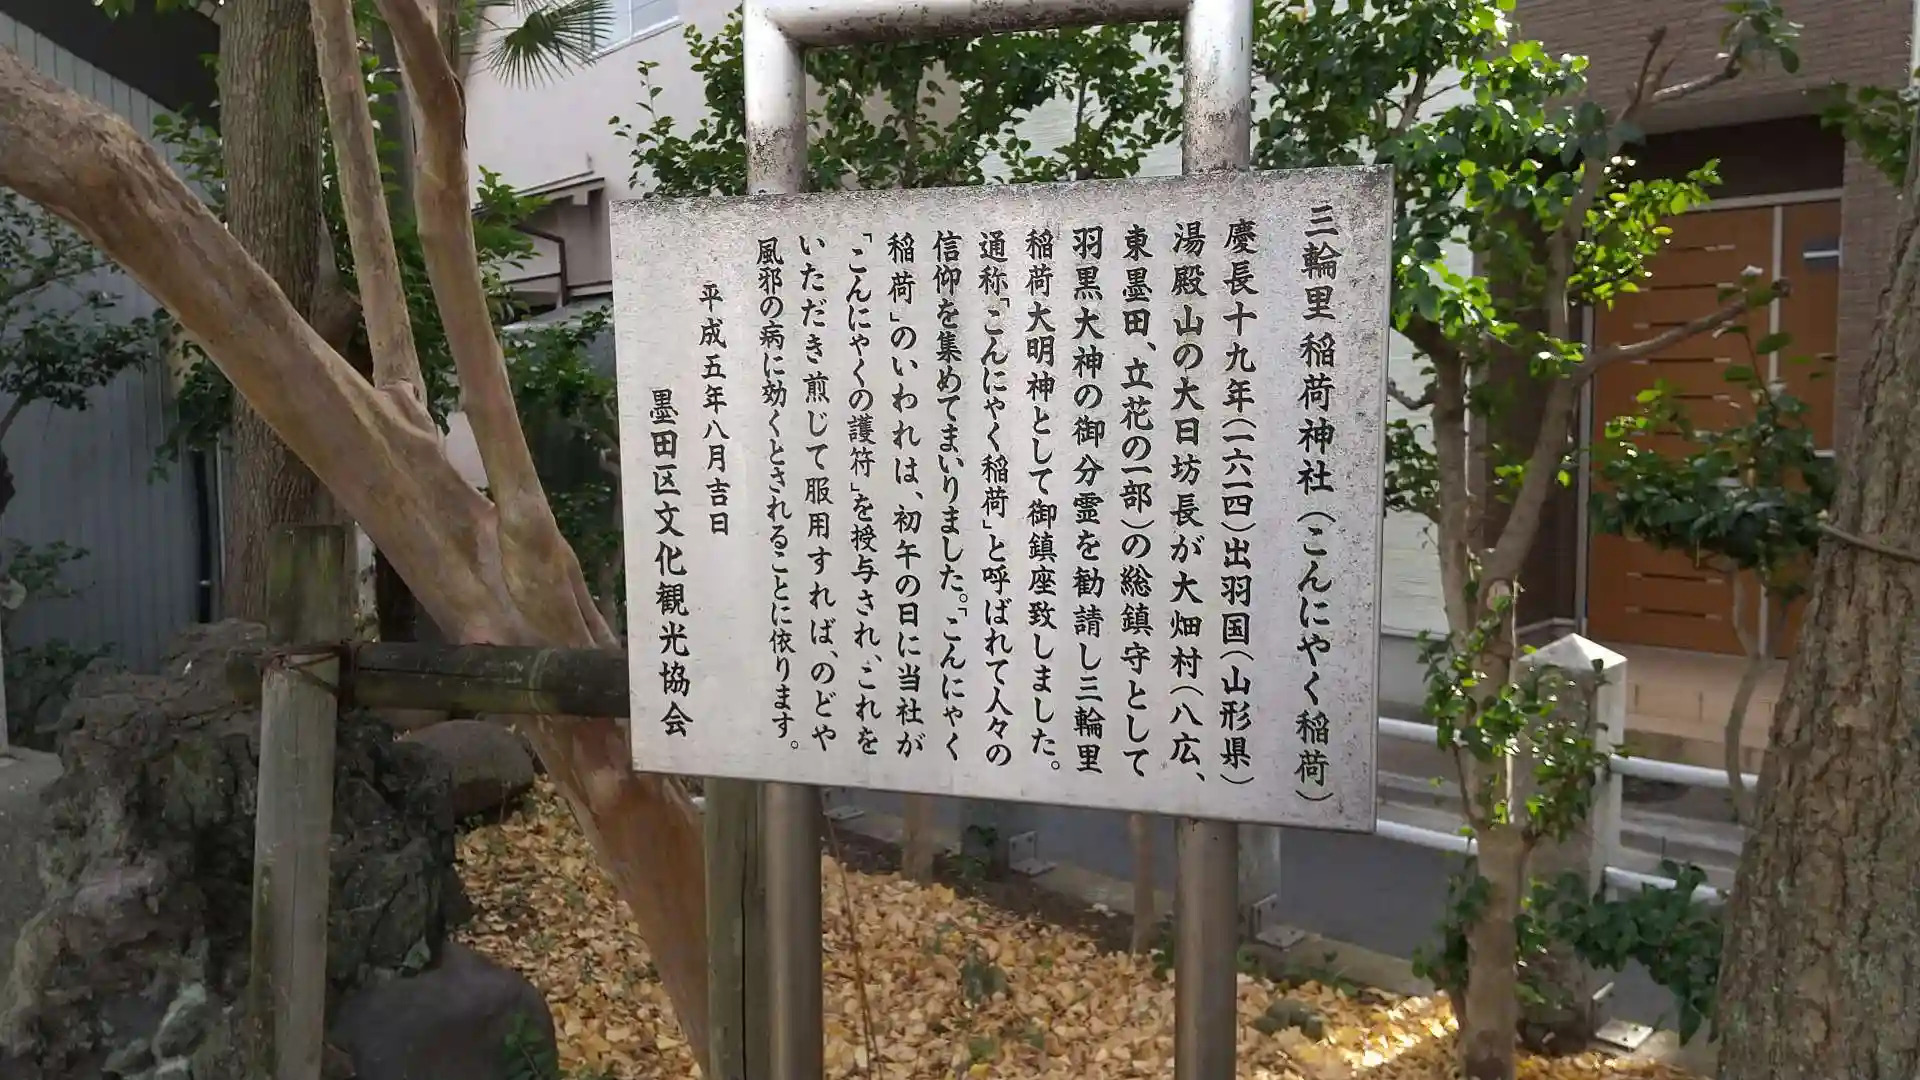 三輪里稲荷神社(こんにやく稲荷)
慶長十九年(一六一四)出羽国(山形県)
湯殿山の大日坊長が大畑村(八広、
東墨田、立花の一部)の総鎮守として
羽黒大神の御分霊を勧請し三輪里
稲荷大明神として御鎮座致しました。
通称「こんにゃく稲荷」と呼ばれて人々の
信仰を集めてまいりました。「こんにゃく
稲荷」のいわれは、初午の日に当社が
「こんにゃくの護符」を授与され、これを
いただき煎じて服用すれば、のどや
風邪の病に効くとされることに依ります。
平成五年八月吉日
墨田区文化観光協会